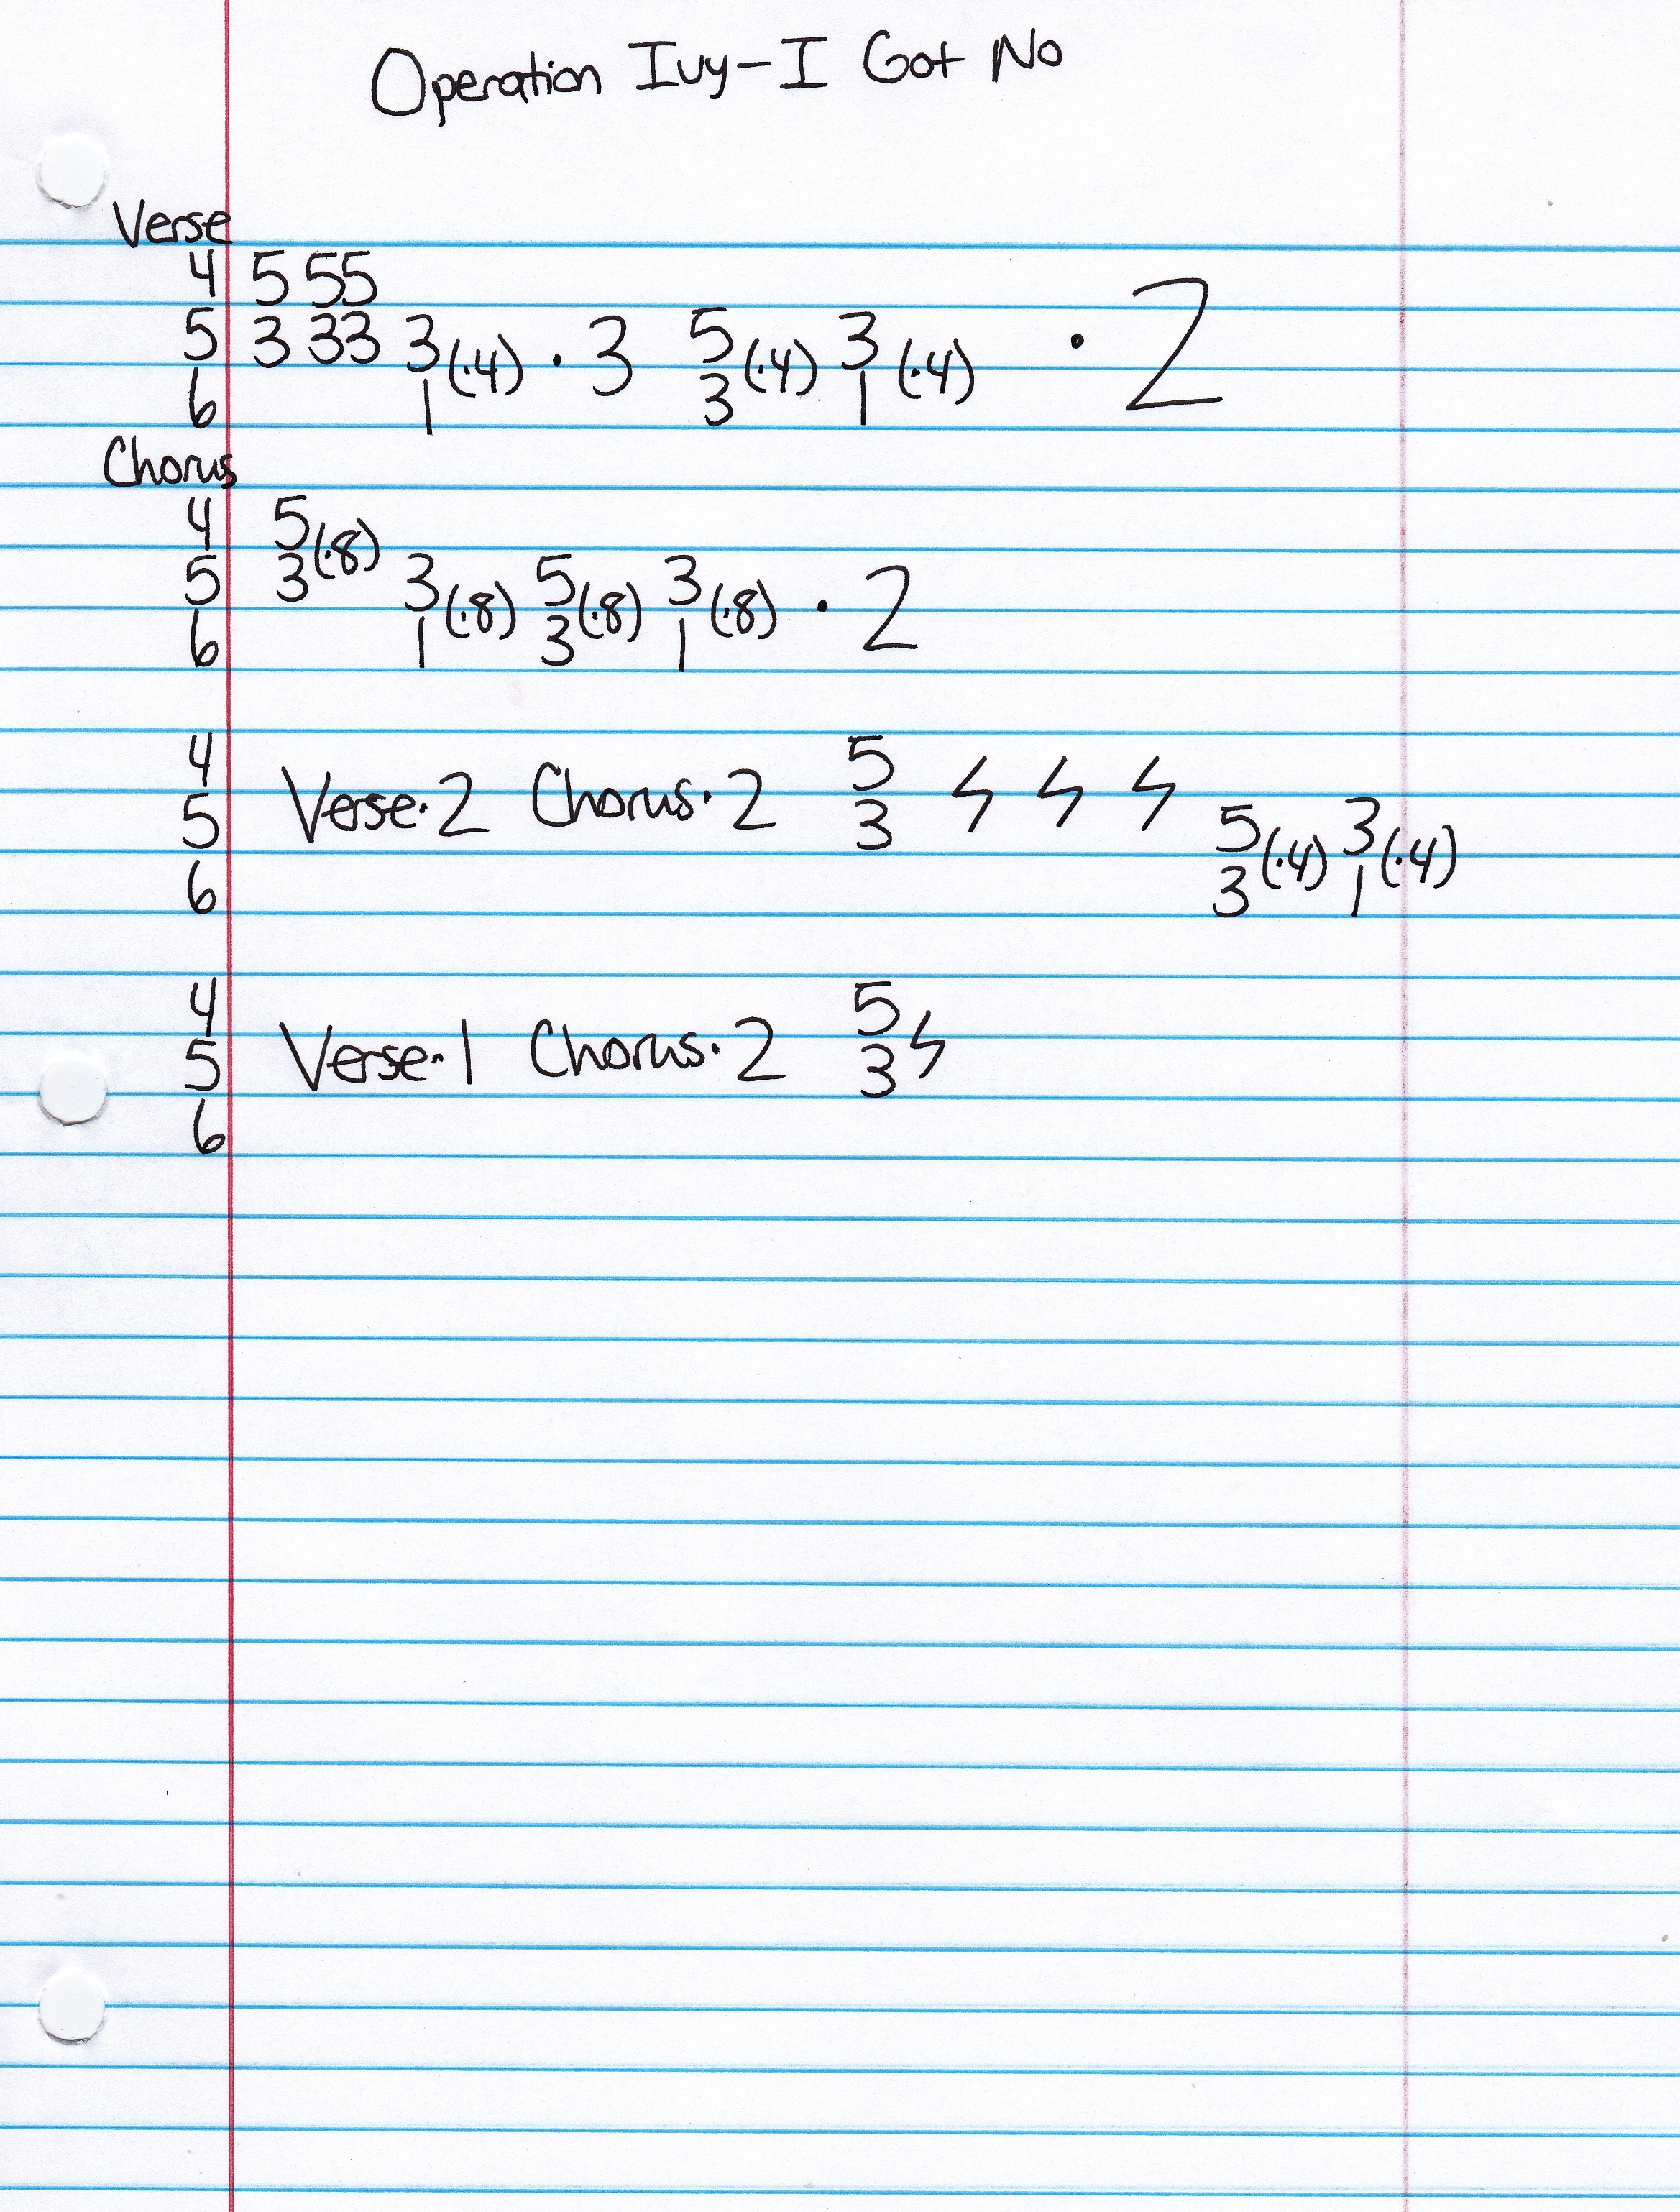 Operation Ivy-I Got No
Verse
4 5 55
5 3 33 3(·4) · 3 5(·4) 3(·4) · 2
6 1 3 1
Chorus
4 5(·8)
5 3 3(·8) 5(·8) 3(·8) · 2
6 1 3 1
4 5
5 Verse·2 Chorus·2 3 ϟ ϟ ϟ 5(·4) 3(·4)
6 3 1
4 5
5 Verse·1 Chorus·2 3 ϟ
6